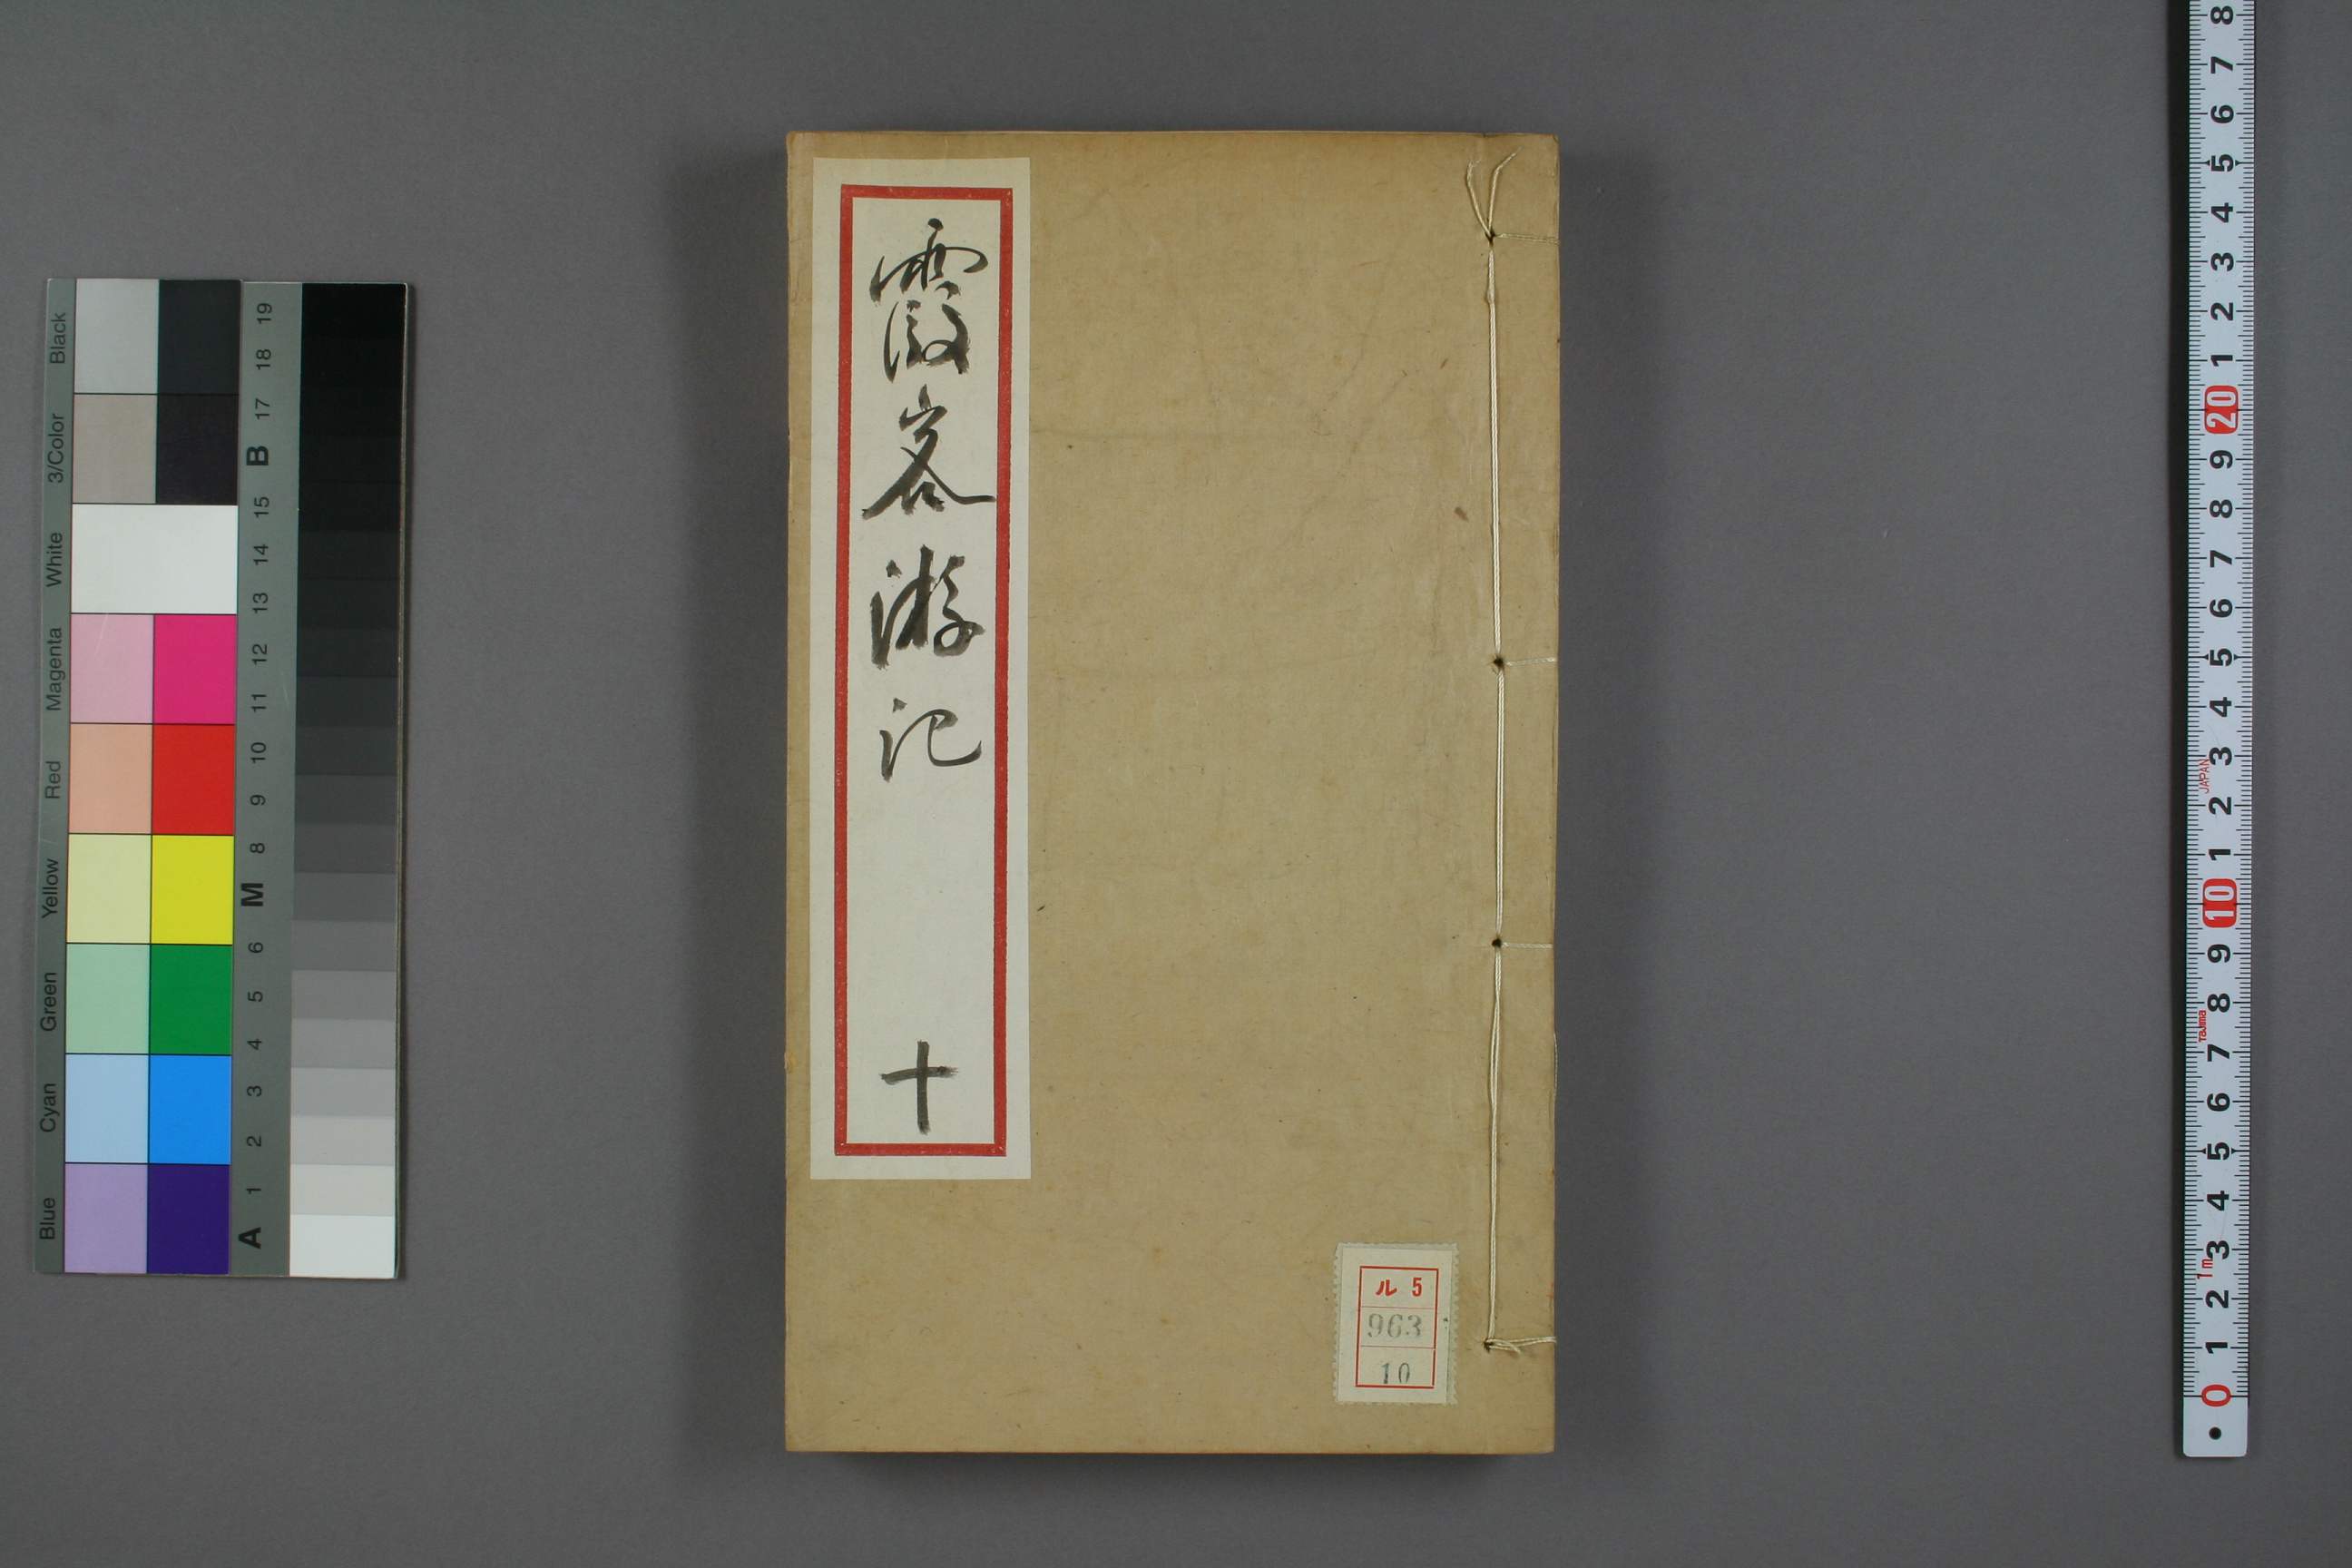 霞客游记
十
ル 5
963
10
Black
3/Color
White
Magenta
Red
Yellow
Green
Cyan
Blue
19
18
17
B
15
14
13
12
11
10
9
8
M
6
5
4
3
2
1
A
8
7
6
5
4
3
2
1
20
9
8
7
6
5
4
3
JAPAN
2
1
10
9
8
Tajima
7
6
5
4
3
1m
2
1
0